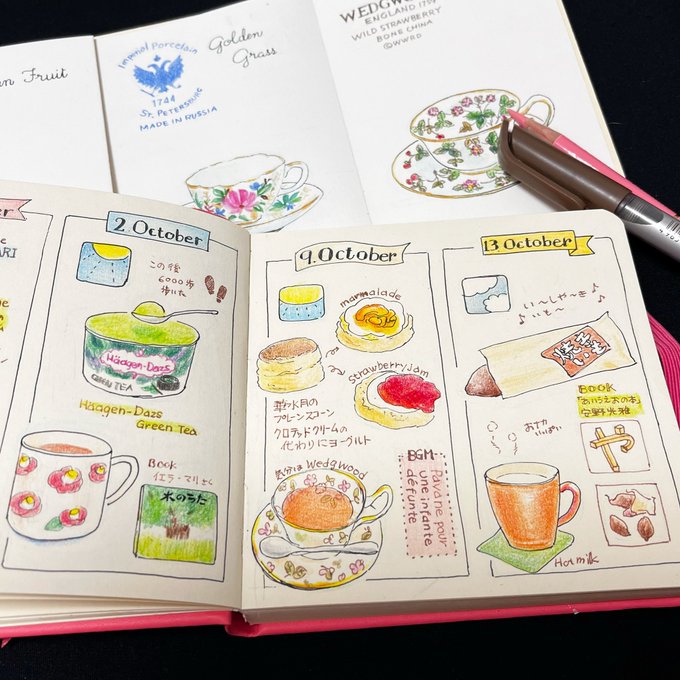 n Fruit
Imperial Porcelain
1744
ST. PETERSBURG
MADE IN RUSSIA
Golden
Grass
WEDGW
ENGLAND 1759
WILD STRAWBERRY
BONE CHINA
©WWRD
ARI
2. October
この後
6000歩
歩いた
Häagen-Dazs
GREEN TEA
Häagen-Dazs
Green Tea
Book
イエラ・マリさく
木のうた
9. October
marmalade
Strawberry jam
プレーンスコーン
クロテッドクリームの
代わりにヨーグルト
気分は Wedgwood
BGM
Pavane pour
une infante
défunte
13. October
い〜しや〜き
いも〜
BOOK
「あいうえおの本」
安野光雅
おなか
いっぱい
や
Hot milk